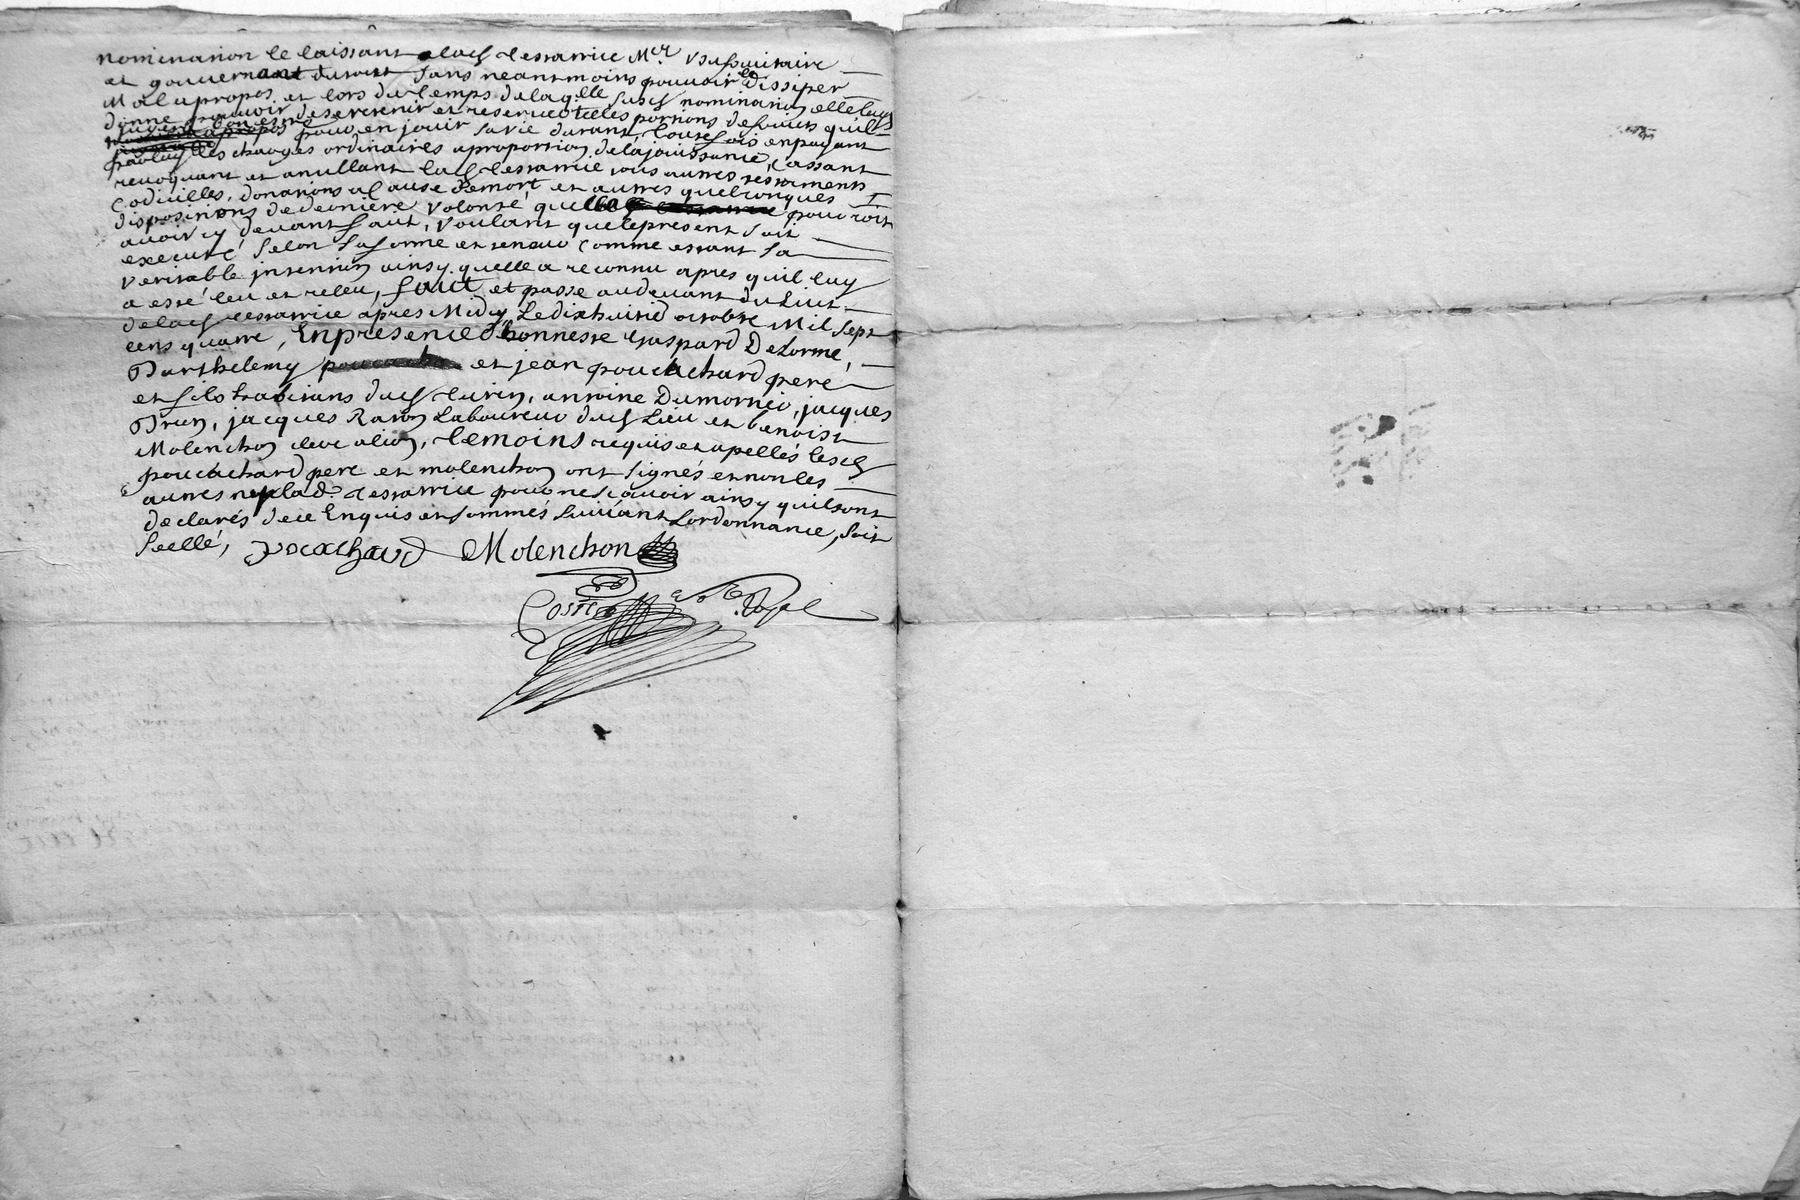 nomination le laissant lad testatrice Mere usufruitaire
et gouvernant durant sans neantmoins pouvoir le dissiper
Mal apropos, et lors du temps delaqlle susd nomination elle luy
donne pouvoir de retenir et reserver telles portions de fruits quil
apropos pour en jouir sa vie durant, toutesfois en payant
par luy les charges ordinaires aproportion delajouissance, Cassant
revoquant et anullant lad testatrice tous autres testaments
Codicilles, donations a Cause demort et autres quelconques
dispositions de derniere volonté quelle pourroit
avoir cy devant fait, voulant quelepresent soit
executé selon sa forme et teneur Comme estant sa
veritable jntention ainsy quelle a reconnu apres quil luy
a esté leu et releu, fait et passé audevant du Lict
delad testatrice apres Midy Ledixhuitie octobre Mil sept
cens quatre, En presence d'honneste Gaspard Delorme,
Barthelemy et jean pourchard pere
et fils habitans dud Curin, antoine Dumornier, jacques
Brun, jacques Raton Laboureur dud Lieu et benoist
Molenchon clerc a lion, temoins requis et apellés lesd
pourchard pere et molenchon ont signés et non les
autres ny lad. testatrice pour ne scavoir ainsy quilsont
declarés dece Enquis et sommés suivant Lordonnance, soit
scellé, Molenchon
Coste Royal